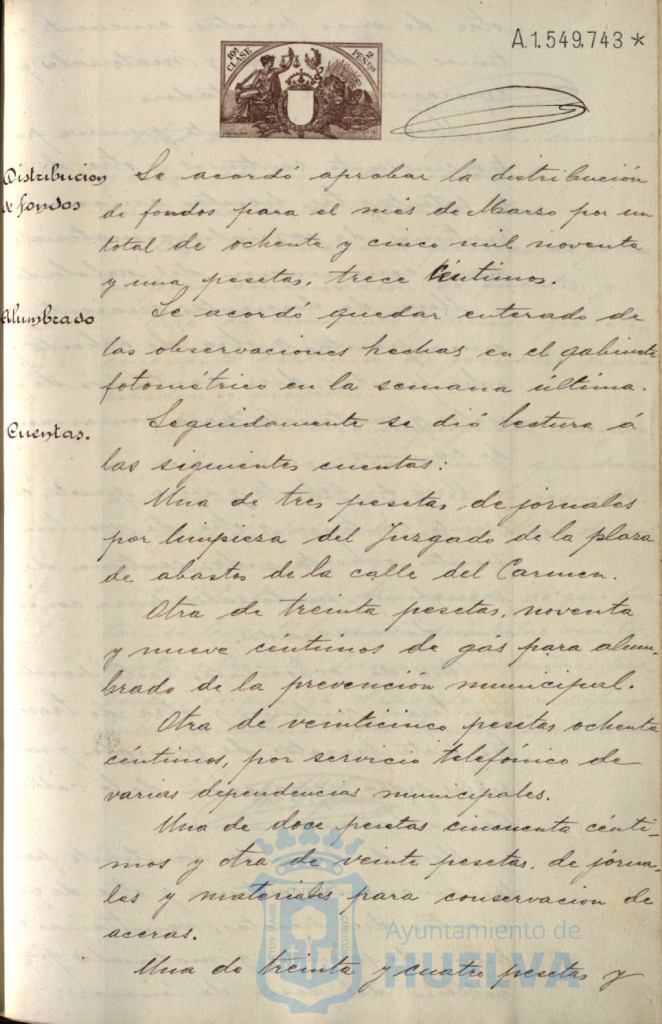 A.1.549.743 *
10ª CLASE
2 PESETAS
Distribucion
de fondos
Se acordó aprobar la distribución
de fondos para el més de Marzo por un
total de ochenta y cinco mil noventa
y una pesetas, trece céntimos.
Alumbrado
Se acordó quedar enterado de
las observaciones hechas en el gabinete
fotométrico en la semana última.
Cuentas.
Seguidamente se dió lectura á
las siguientes cuentas:
Una de tres pesetas de jornales
por limpieza del Juzgado de la plaza
de abastos de la calle del Carmen.
Otra de treinta pesetas, noventa
y nueve céntimos de gás para alum-
brado de la prevención municipal.
Otra de veinticinco pesetas ochenta
céntimos, por servicio telefónico de
varias dependencias municipales.
Una de doce pesetas cincuenta cénti-
mos y otra de veinte pesetas, de jorna-
les y materiales para conservacion de
aceras.
Una de treinta y cuatro pesetas y
Ayuntamiento de
HUELVA